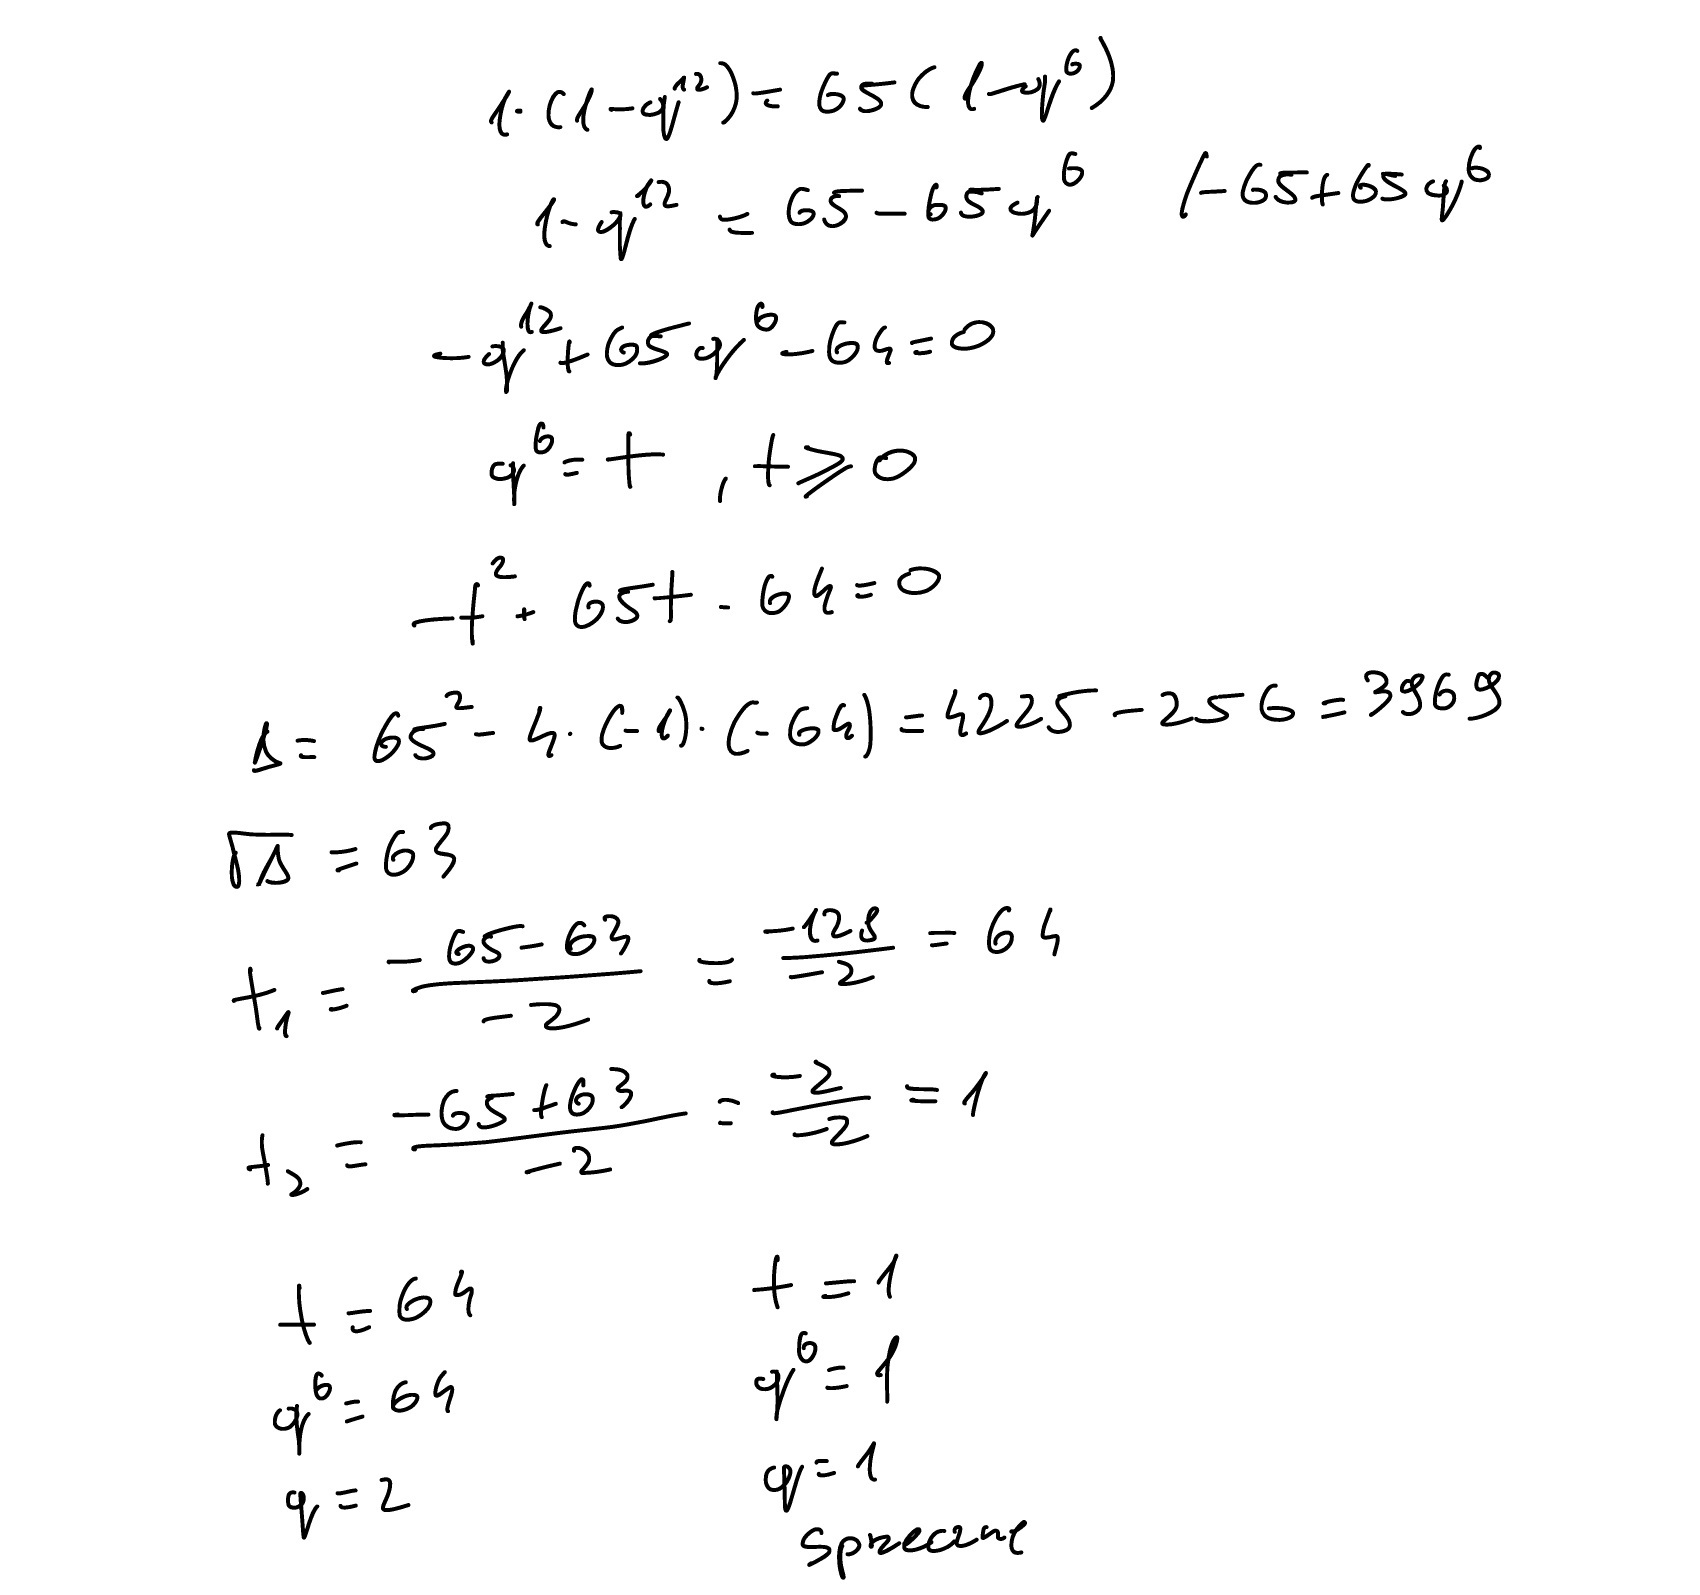 1·(1-q¹²)= 65(1-q⁶)
1-q¹² = 65-65q⁶ /-65+65q⁶
-q¹²+65q⁶-64=0
q⁶=t , t⩾0
-t²+65t-64=0
Δ= 65²-4·(-1)·(-64)=4225-256=3969
√Δ =63
t₁ = (-65-63)/(-2) = (-128)/(-2) = 64
t₂ = (-65+63)/(-2) = (-2)/(-2) = 1
t=64 t=1
q⁶=64 q⁶=1
q=2 q=1
Sprzeczne